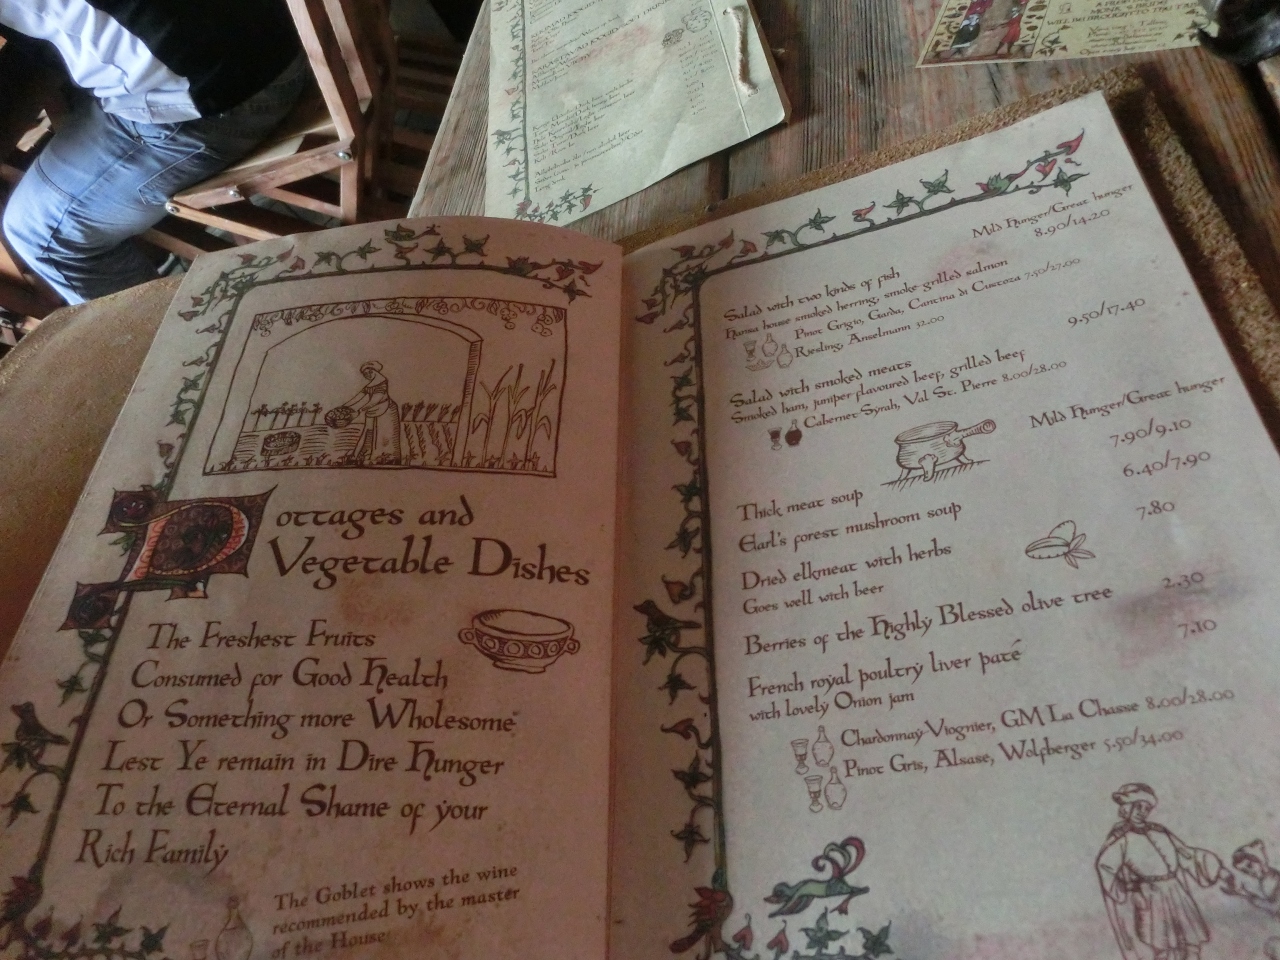 Pottages and
Vegetable Dishes
The Freshest Fruits
Consumed for Good Health
Or Something more Wholesome
Lest Ye remain in Dire Hunger
To the Eternal Shame of your
Rich Family
The Goblet shows the wine
recommended by the master
of the House
Mild Hunger/Great hunger
Salad with two kinds of fish 8.90/14.20
Hansa house smoked herring, smoke-grilled salmon
Pinot Grigio, Garda, Cantina di Custoza 7.50/27.00
Riesling, Anselmann 32.00
Salad with smoked meats 9.50/17.40
Smoked ham, juniper flavoured beef, grilled beef
Cabernet-Syrah, Val St. Pierre 8.00/28.00
Mild Hunger/Great hunger
Thick meat soup 7.90/9.10
Earl's forest mushroom soup 6.40/7.90
Dried elkmeat with herbs 7.80
Goes well with beer
Berries of the Highly Blessed olive tree 2.30
French royal poultry liver paté 7.10
with lovely Onion jam
Chardonnay-Viognier, GM La Chasse 8.00/28.00
Pinot Gris, Alsase, Wolfberger 5.50/34.00